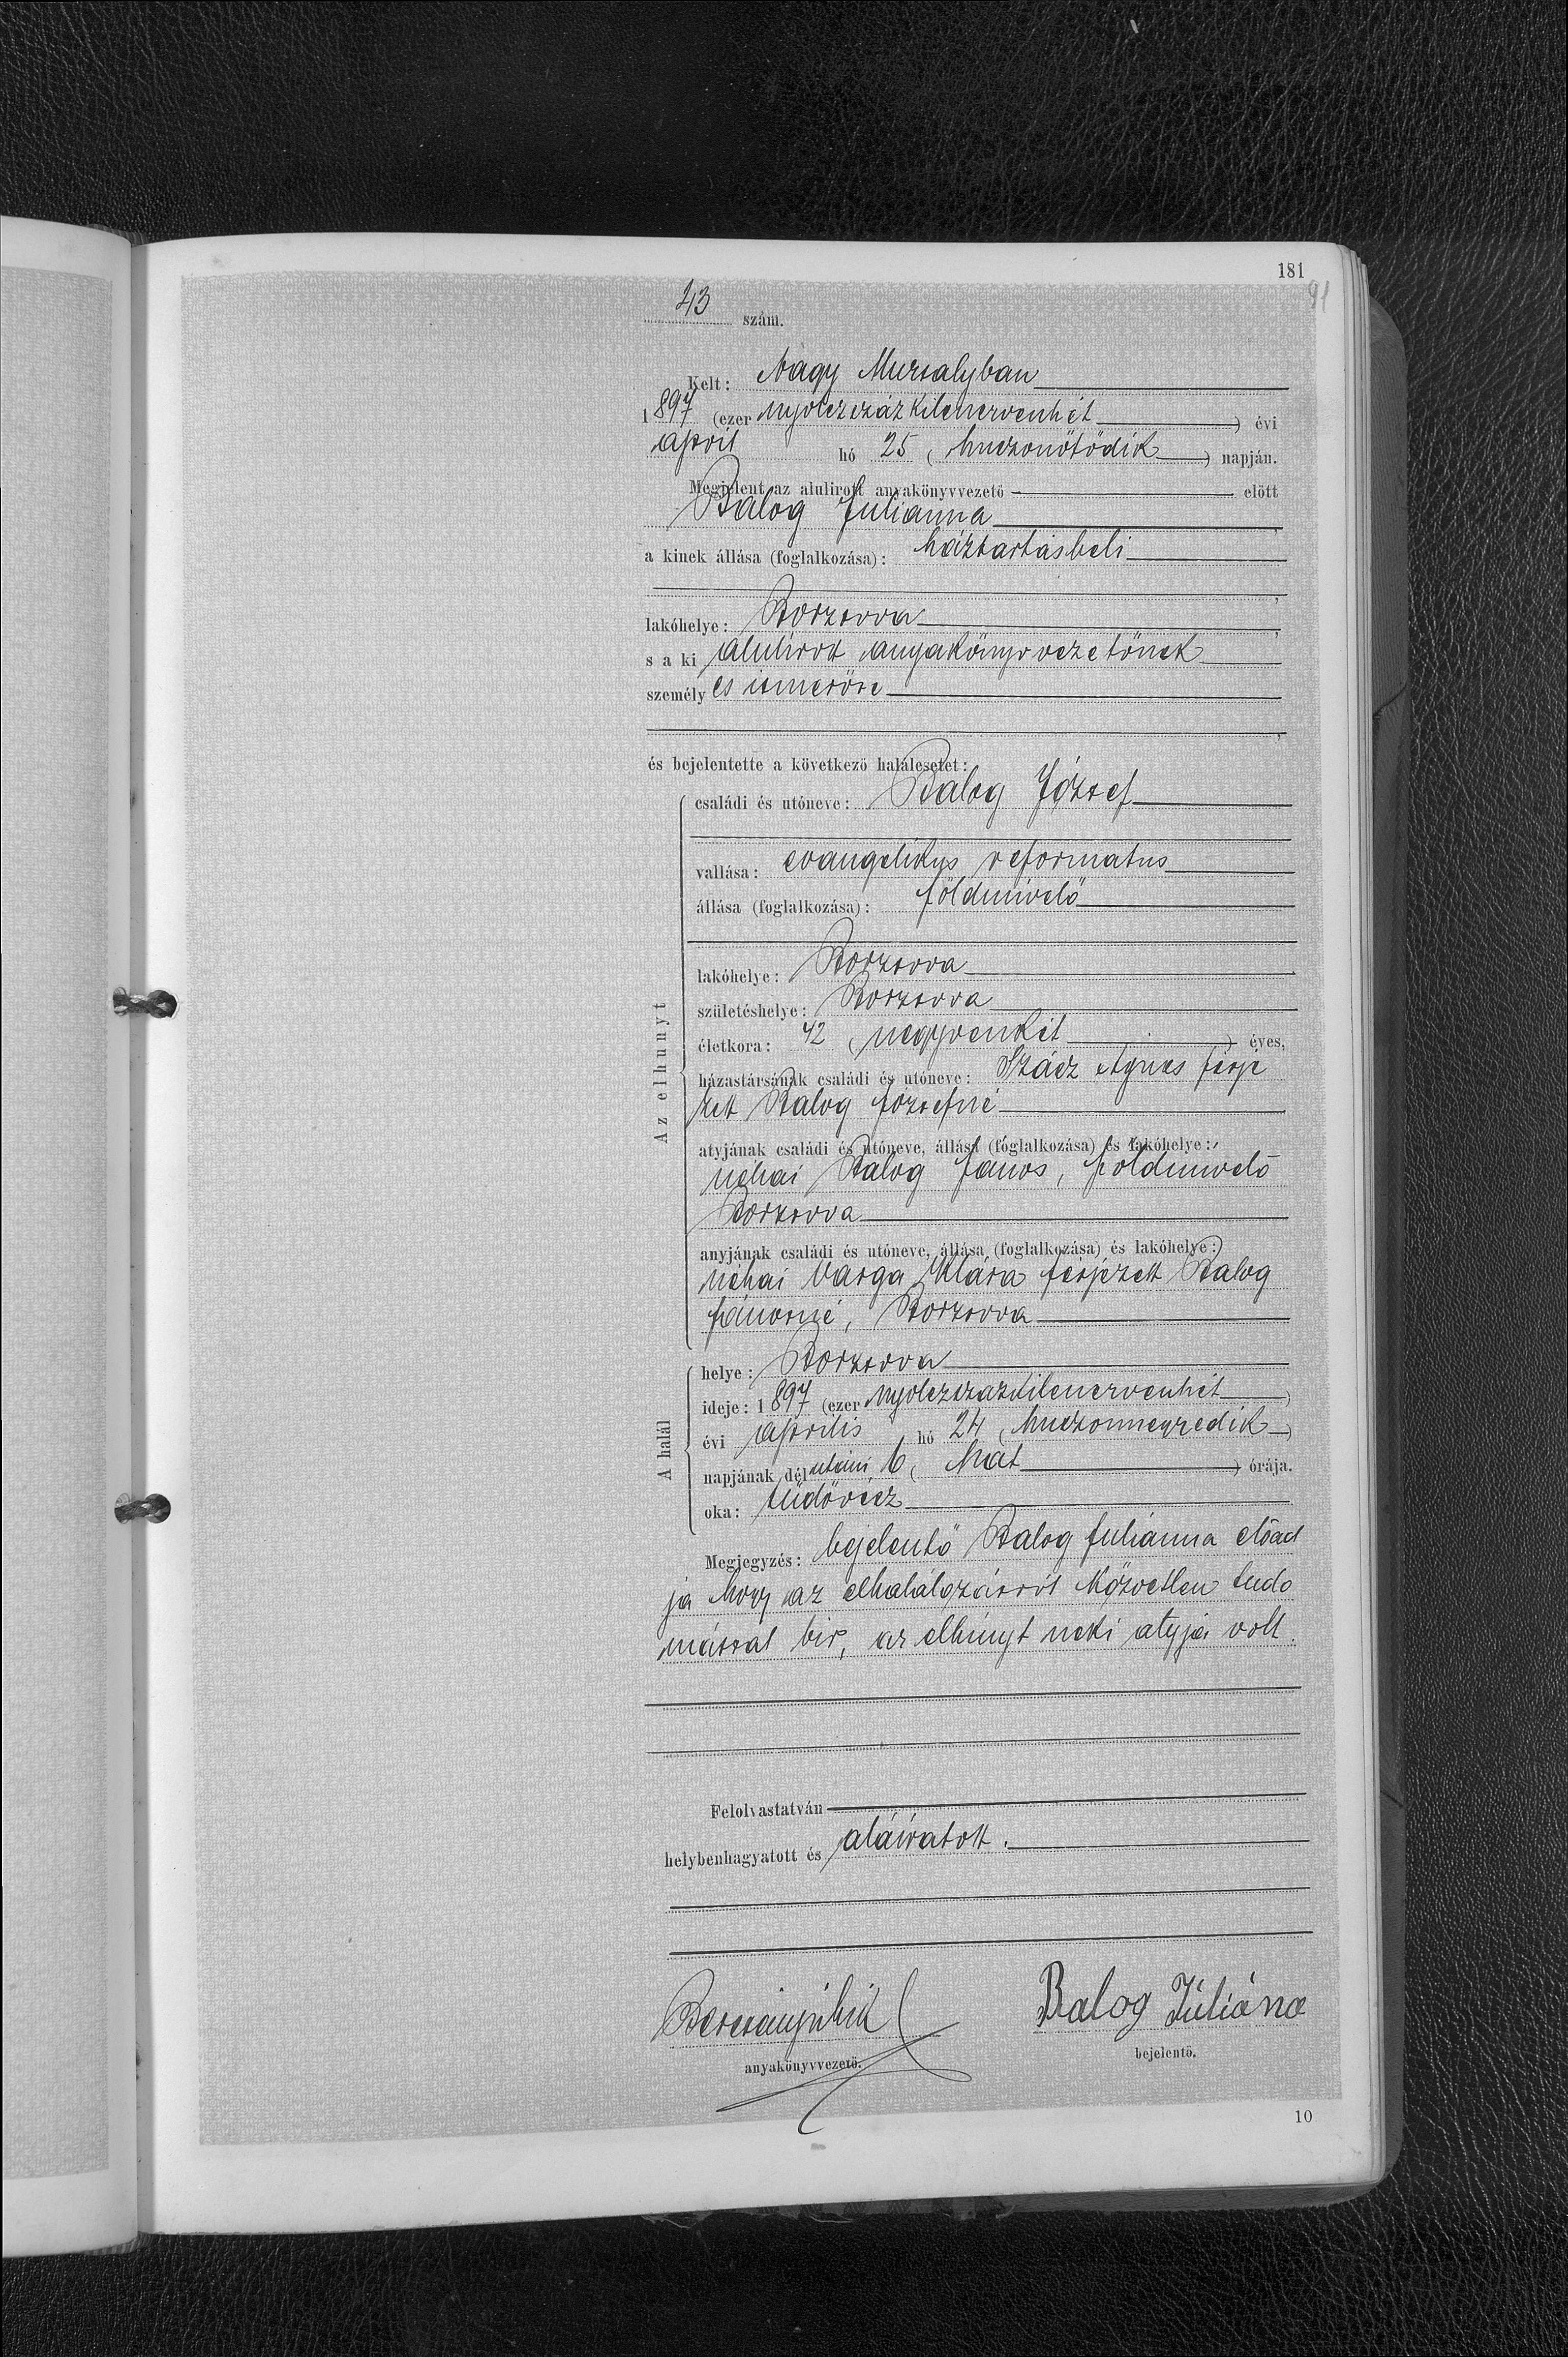 181
91
43 szám.
Kelt: Nagy Muzsalyban
1897 (ezer nyolczszázkilenczvenhét) évi
april hó 25 (huszonötödik) napján.
Megjelent az alulirott anyakönyvvezető előtt
Balog Julianna,
a kinek állása (foglalkozása): háztartásbeli
,
lakóhelye: Borzsova,
s a ki alulirott anyakönyvvezetőnek
személyes ismerőse
,
és bejelentette a következő halálesetet:
Az elhunyt
családi és utóneve: Balog József
vallása: evangelikus reformatus
állása (foglalkozása): földmivelő
lakóhelye: Borzsova
születéshelye: Borzsova
életkora: 42 (negyvenkét) éves,
házastársának családi és utóneve: Szász Ágnes férje
zett Balog Józsefné
atyjának családi és utóneve, állása (foglalkozása) és lakóhelye:
néhai Balog János, földmivelő
Borzsova
anyjának családi és utóneve, állása (foglalkozása) és lakóhelye:
néhai Varga Klára férjezett Balog
Jánosné, Borzsova
A halál
helye: Borzsova
ideje: 1897 (ezer nyolczszázkilenczvenhét)
évi április hó 24 (huszonnegyedik)
napjának délutáni 6 (hat) órája.
oka: tüdővész
Megjegyzés: bejelentő Balog Julianna előad
ja hogy az elhalálozásról közvetlen tudo
mással bir, az elhunyt neki atyja volt.
Felolvastatván
helybenhagyatott és aláiratott.
Balog Júliána
anyakönyvvezető.
bejelentő.
10